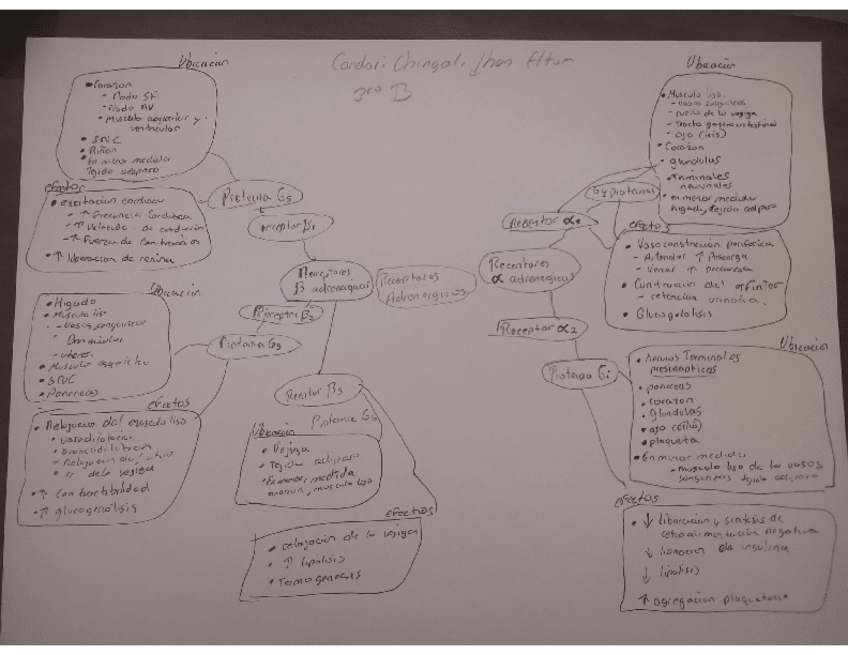 Condori Chingal. Jhon Eltur
3ro B
Ubicación
• Corazon
- Nodo SA
- Nodo AV
- Musculo auricular y
ventricular
• SNC
• Riñon
• En menor medida
Tejido adiposo
efectos
• excitación cardiaca
- ↑ Frecuencia Cardiaca
- ↑ Velocida. de conducción
- ↑ Fuerza de contraccion
• ↑ liberacion de renina
Proteina Gs
receptor β1
Receptores
β adrenergicos
Receptores
Adrenergicos
Ubicación
• Higado
• Musculo liso
- Vasos sanguineos
- utero
• Musculo esqueletico
• SNC
• Pancreas
Receptor β2
Proteina Gs
efectos
• Relajacion del musculo liso
• vasodilatacion
• broncodilatacion
• Relajacion del utero
• de la vejiga
• ↑ Contractibilidad
• ↑ glucogenolisis
Receptor β3
Proteina Gs
Ubicación
• Vejiga
• Tejido adiposo
• En menor medida
musculo liso
efectos
• relajación de la vejiga
• ↑ lipolisis
• Termogenesis
Ubicación
• Musculo liso.
- Vasos sanguineos
- cuello de la vejiga
- tracto gastrointestinal
- ojo (iris)
• Corazon
• glandulas
• Terminales
neuronales
• en menor medida
higado, tejido adiposo
Gq proteinas
Receptor α1
efectos
• Vasoconstricción periferica
- Arteriolar ↑ Poscarga
- Venas ↑ precarga
• Contraccion del esfinter
- retencion urinaria.
• Glucogololisis
Receptores
α adrenergicos
Receptor α2
Proteina Gi
Ubicación
• nervios Terminales
presinapticos
• pancreas
• corazon
• glandulas
• ojo
• plaqueta
• En menor medida
- musculo liso de los vasos
sanguineos tejido adiposo
efectos
• ↓ liberacion y sintesis de
retroalimentación negativa
↓ de insulina
↓ lipolisis
↑ agregacion plaquetaria